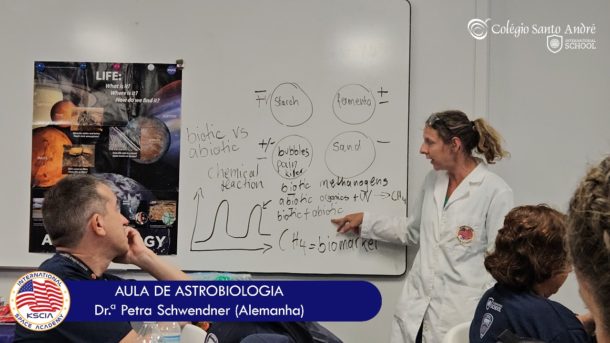 Colégio Santo André
INTERNATIONAL
SCHOOL
LIFE:
What is it?
Where is it?
How do we find it?
Starch
biotic vs
abiotic
+/-
bubbles
pain
killer
Sand
-
Chemical
reaction
biotic methanogens
abiotic organics +
biotic + abiotic
CH4 = biomarker
INTERNATIONAL
KSCIA
SPACE ACADEMY
AULA DE ASTROBIOLOGIA
Dr.ª Petra Schwendner (Alemanha)